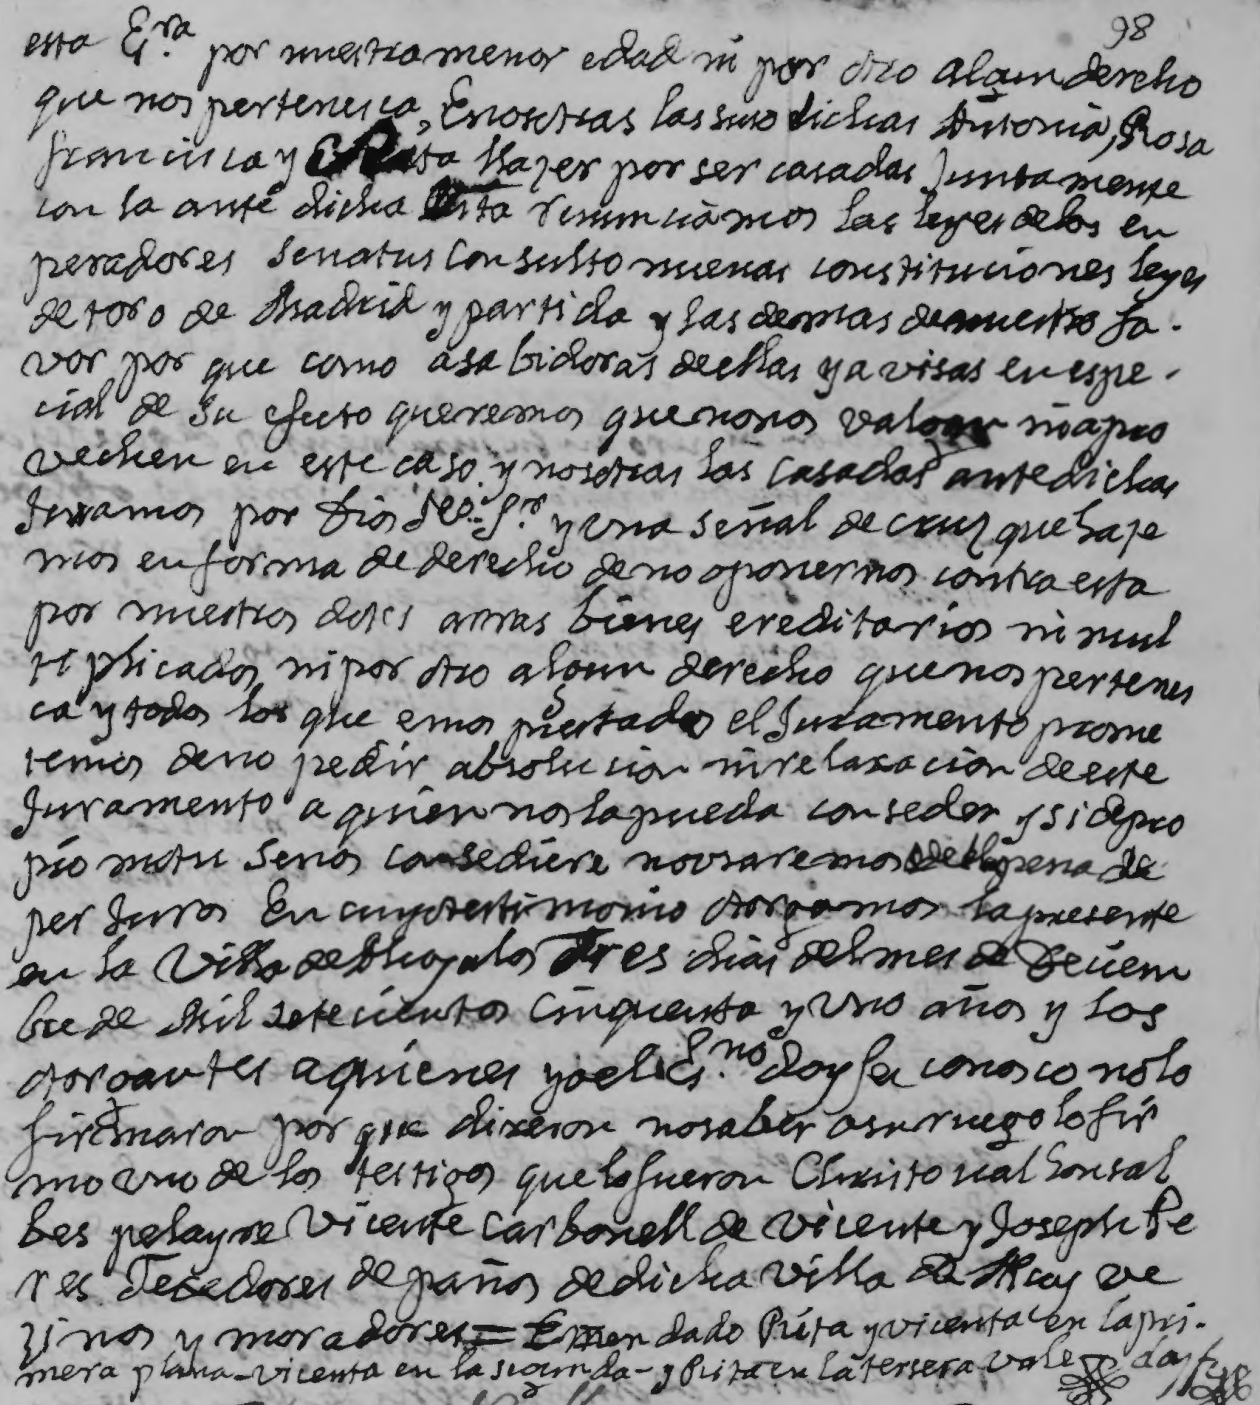 98
esta Es.ra por nuestra menor edad ni por otro algun derecho
que nos pertenesca, Enosotras las suso dichas Antonia, Rosa
francisca y Rita Mager por ser casadas Juntamente
con la ante dicha Rita renunciamos las leyes delos en
peradores Senatus Consulto nuevas constituciones leyes
de toro de Madrid y partida y las demas de nuestro fa.
vor por que como asabidoras deellas y avisas en espe.
cial de su efecto queremos que nonos valgan ni apro
vechen en este caso y nosotras las casadas antedichas
Juramos por Dios Nro. Sr. y una señal de cruz que haze
mos en forma de derecho de no oponernos contra esta
por nuestros dotes arras bienes ereditarios ni mul
tiplicados, ni por otro algun derecho que nos pertenes
ca y todos los que emos prestado el Juramento prome
temos deno pedir absolucion ni relaxacion de este
Juramento a quien nos la pueda conseder y si depro
pio motu senos consediere no usaremos de ella pena de
perjuros En cuyo testimonio otorgamos la presente
en la Villa de Alcoy a los Tres dias del mes de Deciem
bre de Mil setecientos Cinquenta y uno años y los
otorgantes aquienes yo el Es.no doy fee conosco no lo
firmaron por que dixeron no saber asu ruego lo fir
mo uno de los testigos que lo fueron Christoval Gonsal
bes pelayre Vicente Carbonell de Vicente y Joseph Pe
res Texedores de paños de dicha Villa de Alcoy ve
zinos y moradores = Emendado Rita y vicenta en la pri.
mera plana - vicenta en la segunda - y Rita en la tersera vale